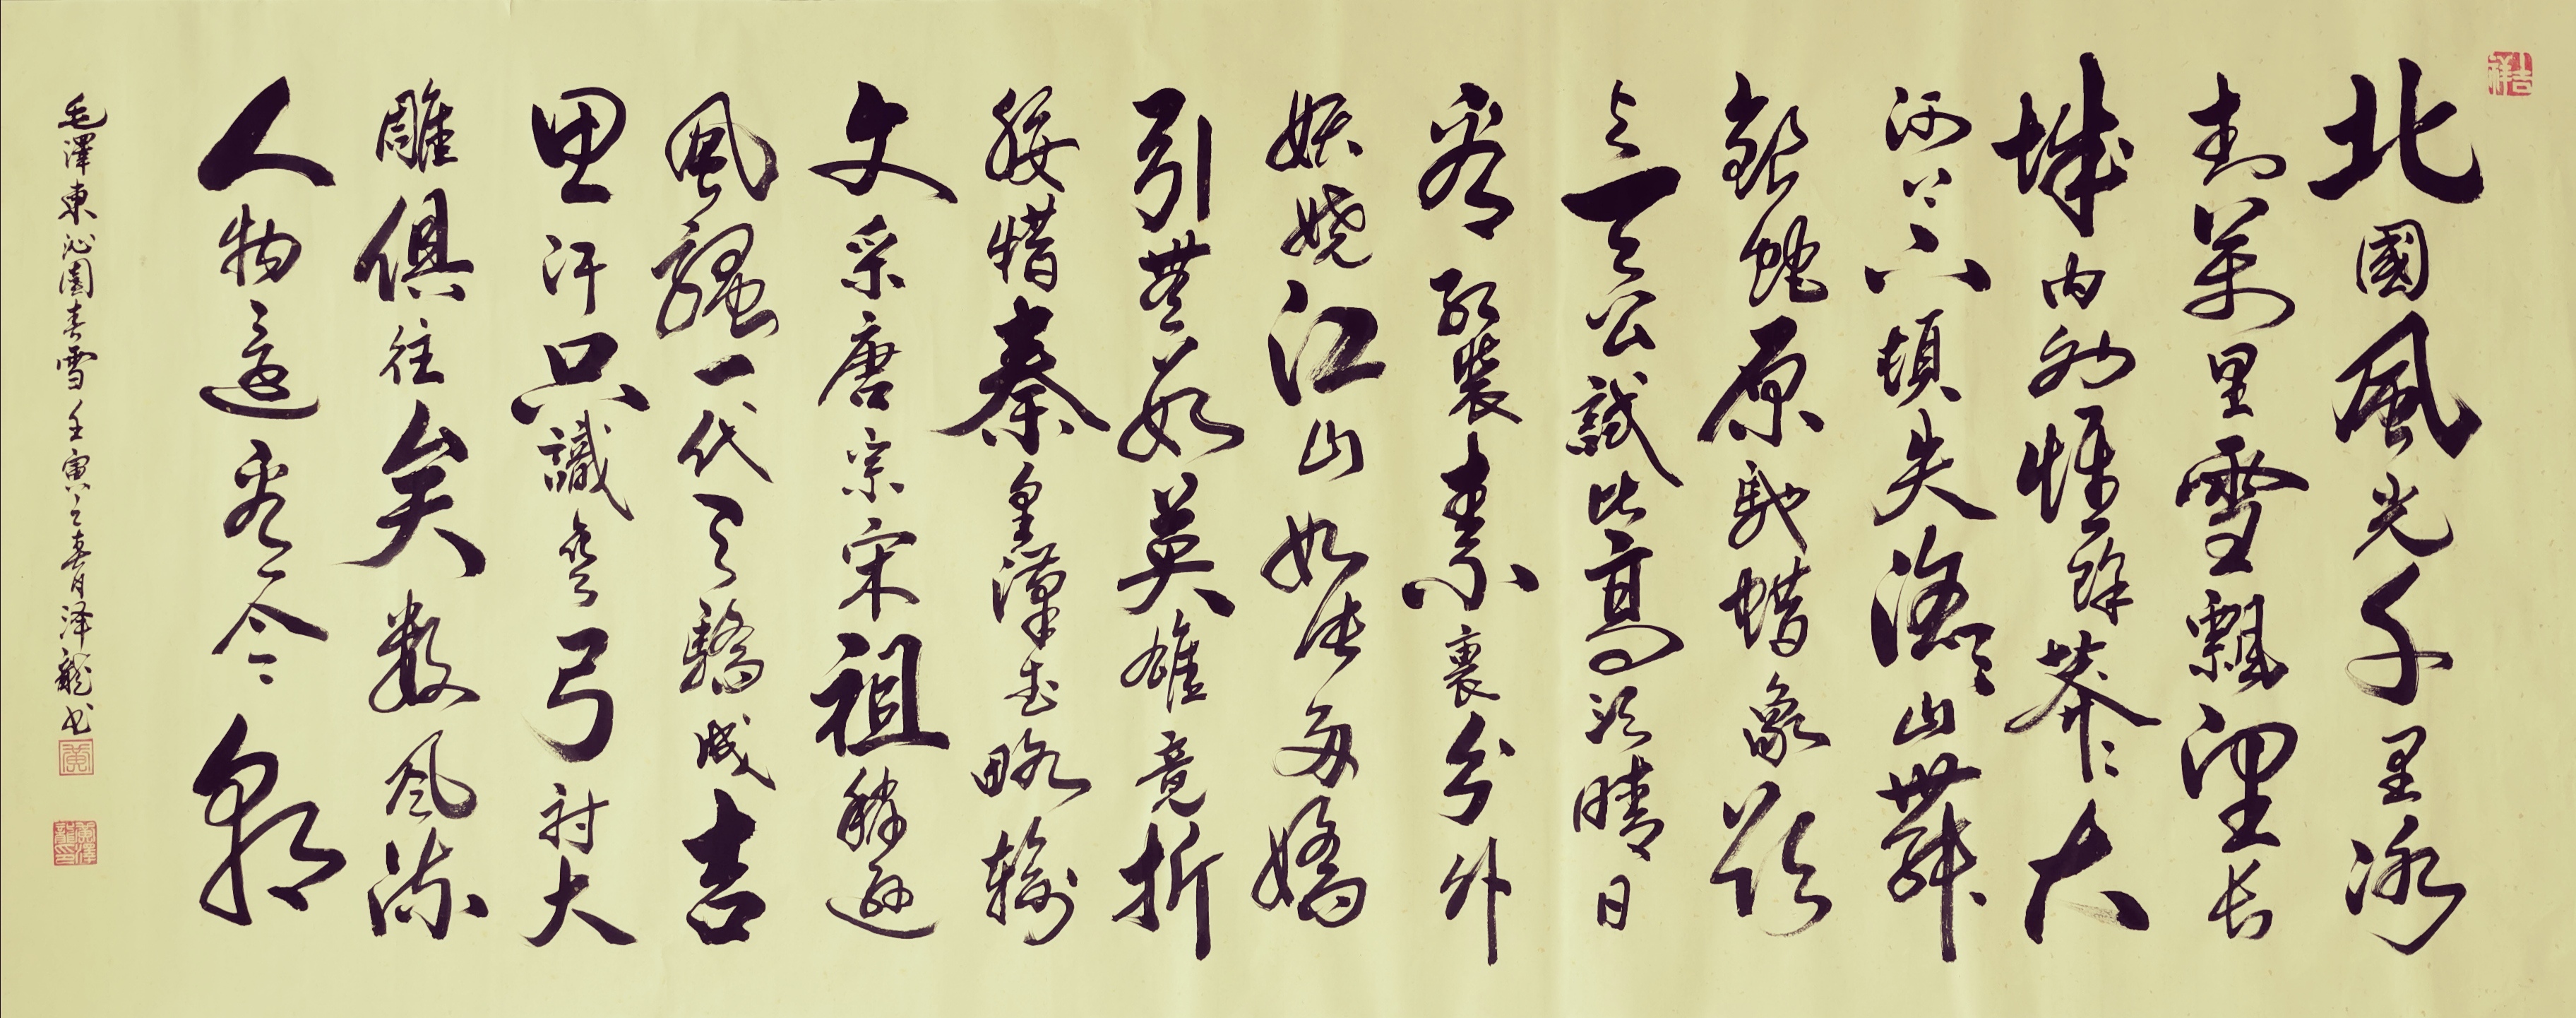 吉祥
北國風光千里冰
封萬里雪飄望长
城内外惟餘莽〻大
河上下頓失滔〻山舞
銀蛇原馳蜡象欲
与天公試比高須晴日
看紅裝素裹分外
妖嬈江山如此多嬌
引無数英雄竟折
腰惜秦皇漢武略輸
文采唐宗宋祖稍遜
風騷一代天驕成吉
思汗只識彎弓射大
雕俱往矣数风流
人物還看今朝
毛澤東沁園春雪壬寅之春月泽龍书
黄
黄澤龍印